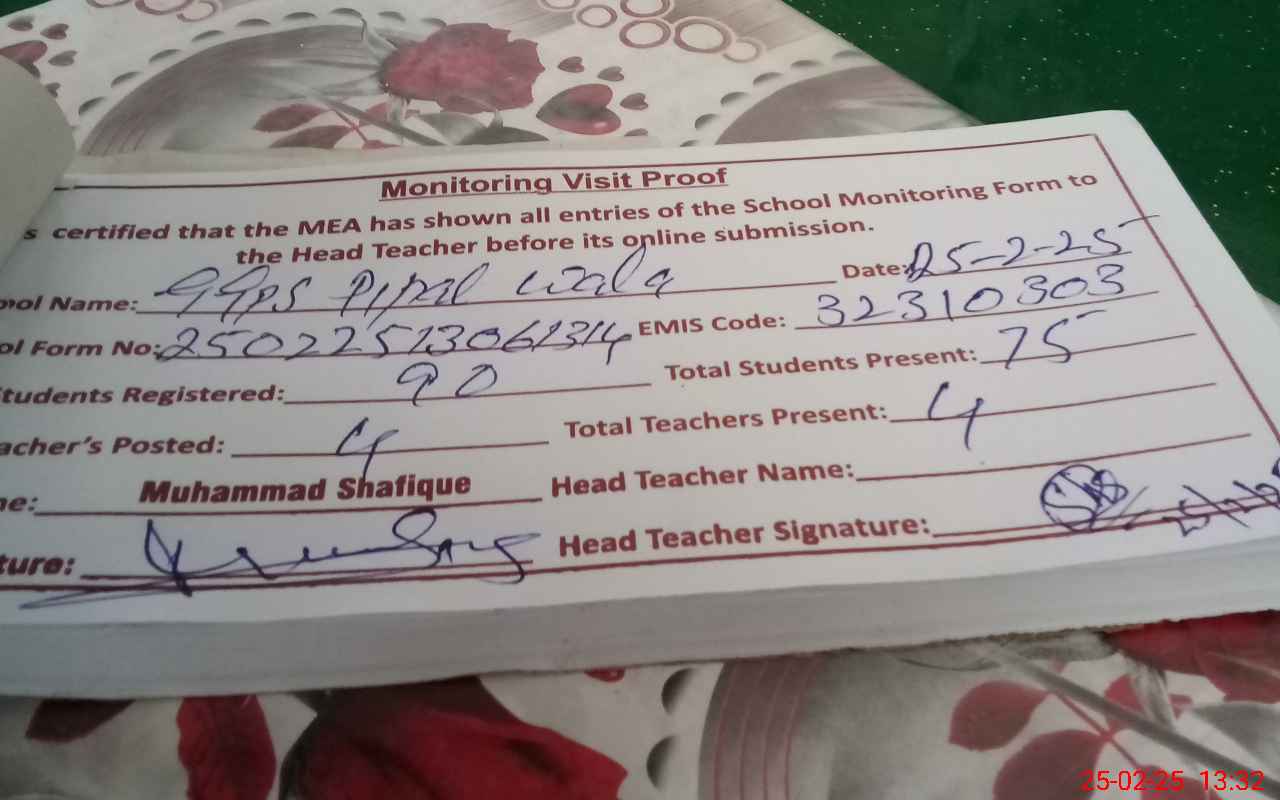 Monitoring Visit Proof
s certified that the MEA has shown all entries of the School Monitoring Form to
the Head Teacher before its online submission.
ool Name: GGPS Pipal Wala Date: 25-2-25
ol Form No: EMIS Code: 32310303
tudents Registered: 90 Total Students Present: 75
acher's Posted: 4 Total Teachers Present: 4
ne: Muhammad Shafique Head Teacher Name:
ture: Head Teacher Signature:
25-02-25 13:32